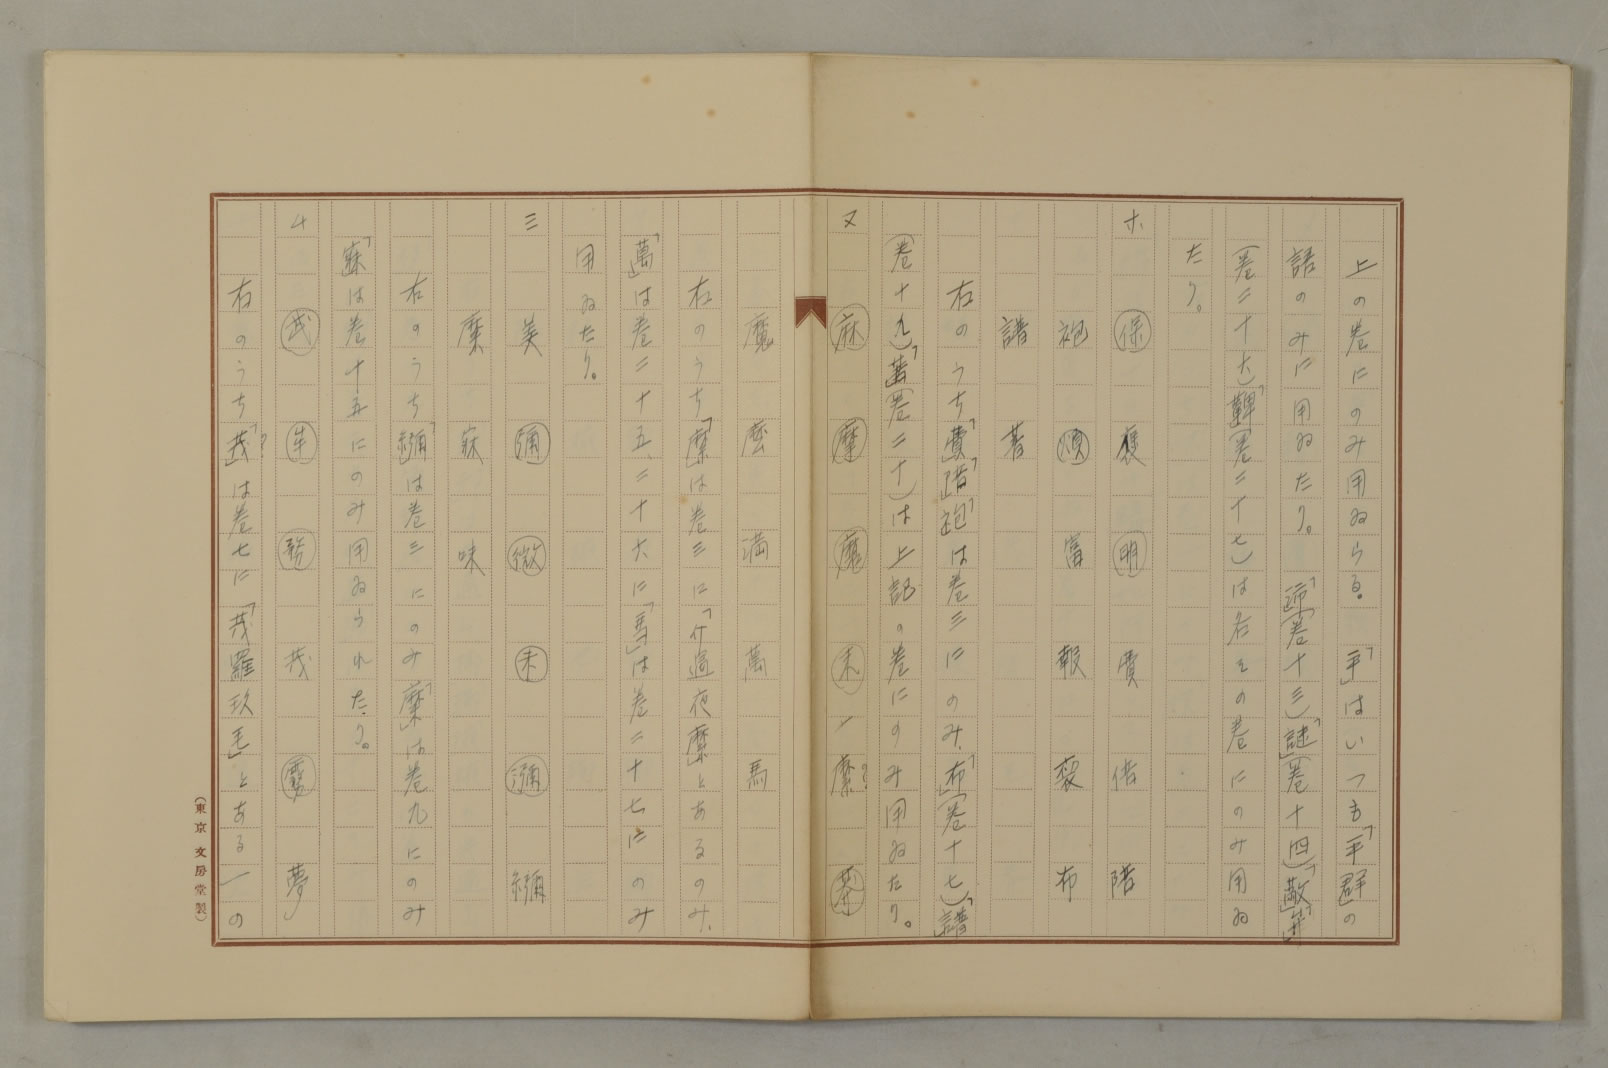 上の巻にのみ用ゐらる。「平」はいつも「平群」の
語のみに用ゐたり。「幣」(巻十三)「謎」(巻十四)「敝」「幷」
(巻二十六)「鞞」(巻二十七)は各その巻にのみ用ゐ
たり。
ホ 保 褒 朋 費 倍 陪
袍 頌 富 報 裒 布
譜 菩
右のうち「費」「陪」「袍」は巻三にのみ、「布」(巻十七)「譜」
(巻十九)「菩」(巻二十)は上記の巻にのみ用ゐたり。
マ 麻 摩 魔 末 糜 莽
魔 麼 満 萬 馬
右のうち「糜」は巻三に「介過夜糜」とあるのみ、
「萬」は巻二十五、二十六に「馬」は巻二十七にのみ
用ゐたり。
ミ 美 彌 微 未 瀰 𦇚
糜 寐 味
右のうち「𦇚」は巻三にのみ「糜」は巻九にのみ
「寐」は巻十五にのみ用ゐられたり。
ム 武 牟 務 茂 霧 夢
右のうち「茂」は巻七に「茂羅玖毛」とある一の
(東京 文房堂製)